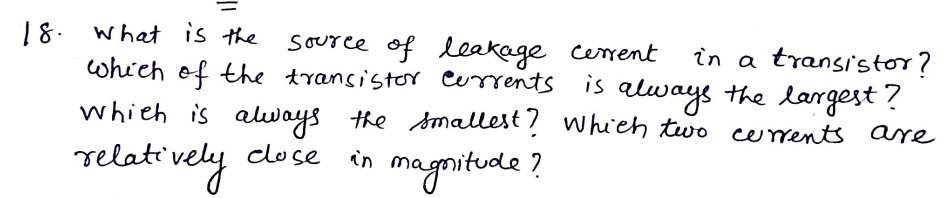 18. What is the source of leakage current in a transistor?
Which of the transistor currents is always the largest?
Which is always the smallest? Which two currents are
relatively close in magnitude?